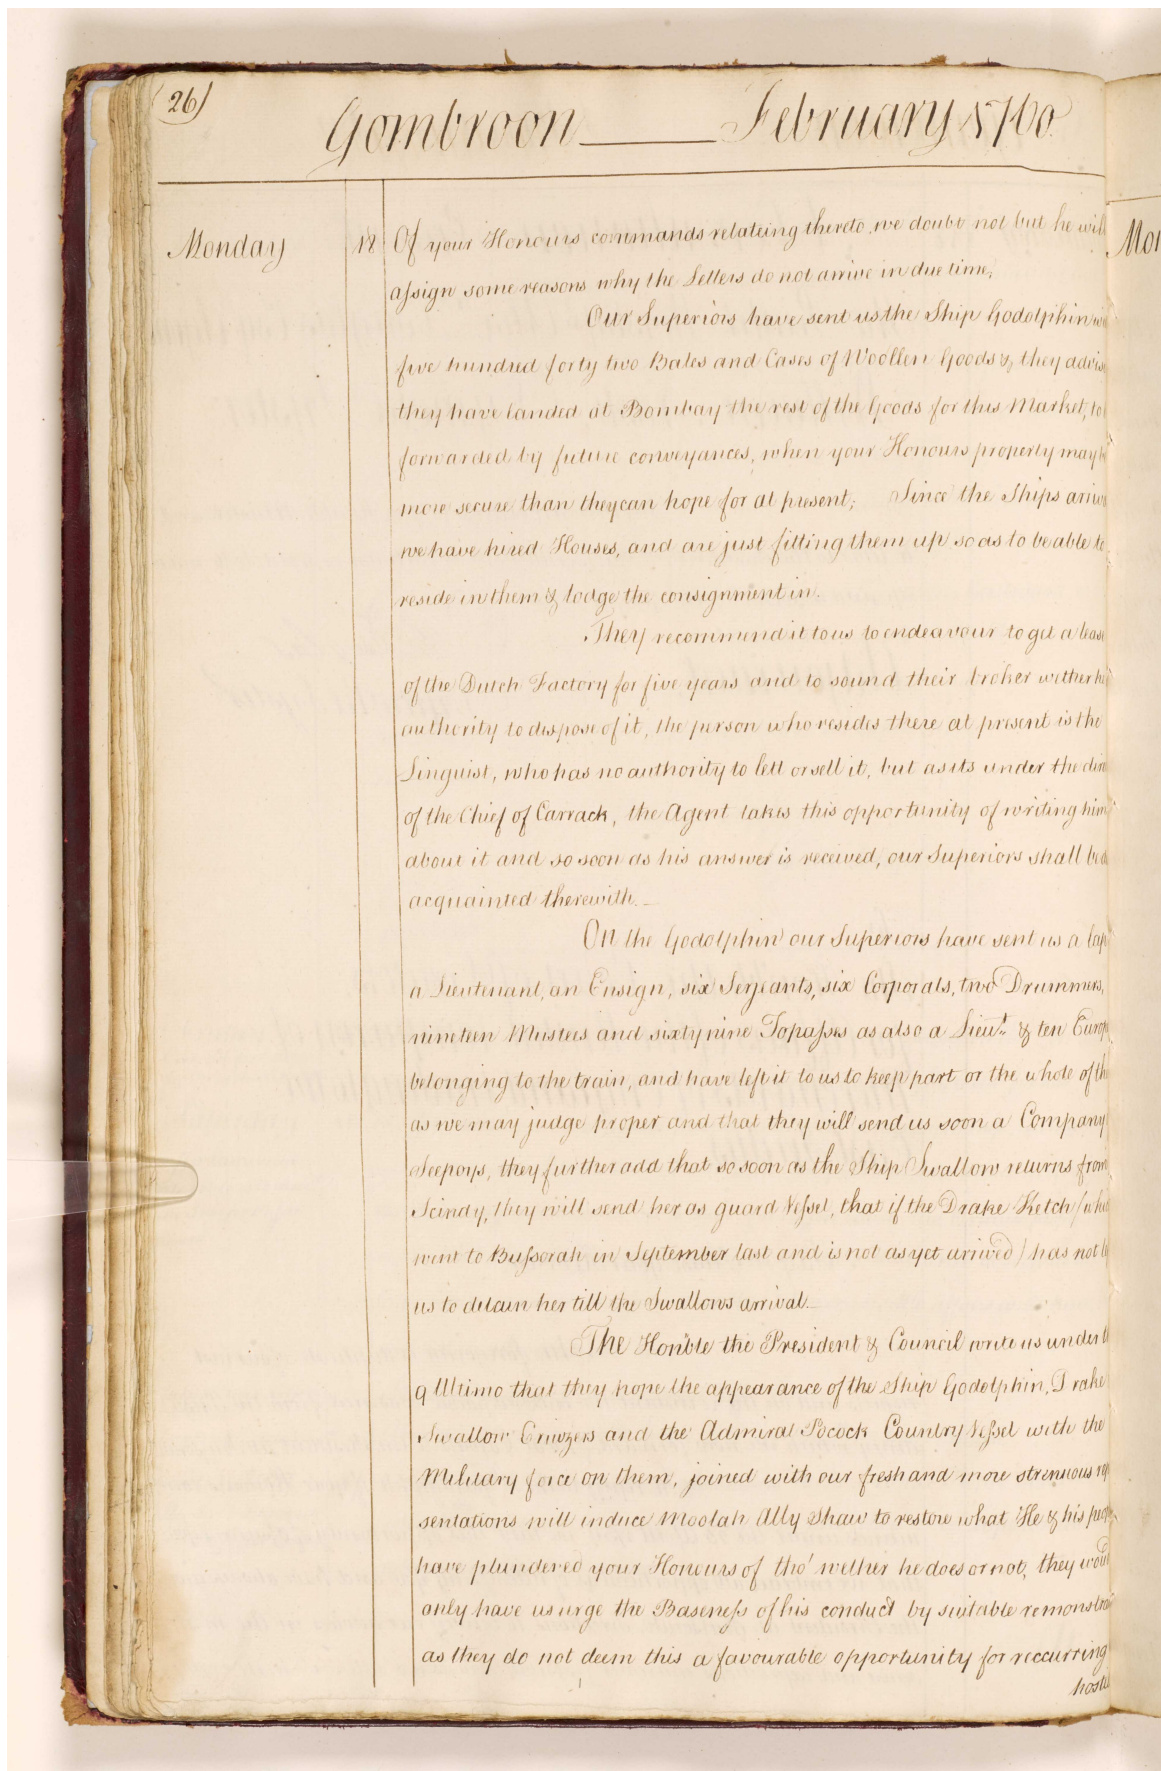 (26)
Gombroon February 1760
Monday 18 Of your Honours commands relateing thereto we doubt not but he will
assign some reasons why the Letters do not arrive in due time,
Our Superiors have sent us the Ship Godolphin
five hundred forty two Bales and Cases of Woollen Goods & they advise
they have landed at Bombay the rest of the Goods for this Market, to
forwarded by future conveyances, when your Honours property may
more secure than they can hope for at present; Since the Ships
we have hired Houses, and are just fitting them up so as to be able to
reside in them & lodge the consignment in.
They recommend it to us to endeavour to get a lease
of the Dutch Factory for five years and to sound their broker wether
authority to dispose of it, the person who resides there at present is the
Linguist, who has no authority to lett or sell it, but as its under the
of the Chief of Carrack, the Agent takes this opportunity of writing him
about it and so soon as his answer is received, our Superiors shall be
acquainted therewith.
On the Godolphin our Superiors have sent us a
a Lieutenant, an Ensign, six Serjeants, six Corporals, two Drummers,
nineteen Mustees and sixty nine Topasses as also a Lieut. & ten
belonging to the train, and have left it to us to keep part or the whole of
as we may judge proper and that they will send us soon a Company
Seepoys, they further add that so soon as the Ship Swallow returns from
Scindy, they will send her as guard Vessel, that if the Drake Ketch (
went to Bussorah in September last and is not as yet arrived) has not
us to detain her till the Swallows arrival.
The Honble the President & Council write us under
9 Ultimo that they hope the appearance of the Ship Godolphin, Drake
Swallow Cruizers and the Admiral Pocock Country Vessel with the
Military force on them, joined with our fresh and more strenuous
sentations will induce Moolah Ally Shaw to restore what He & his
have plundered your Honours of tho' wether he does or not, they would
only have us urge the Baseness of his conduct by suitable
as they do not deem this a favourable opportunity for reccurring
Mon